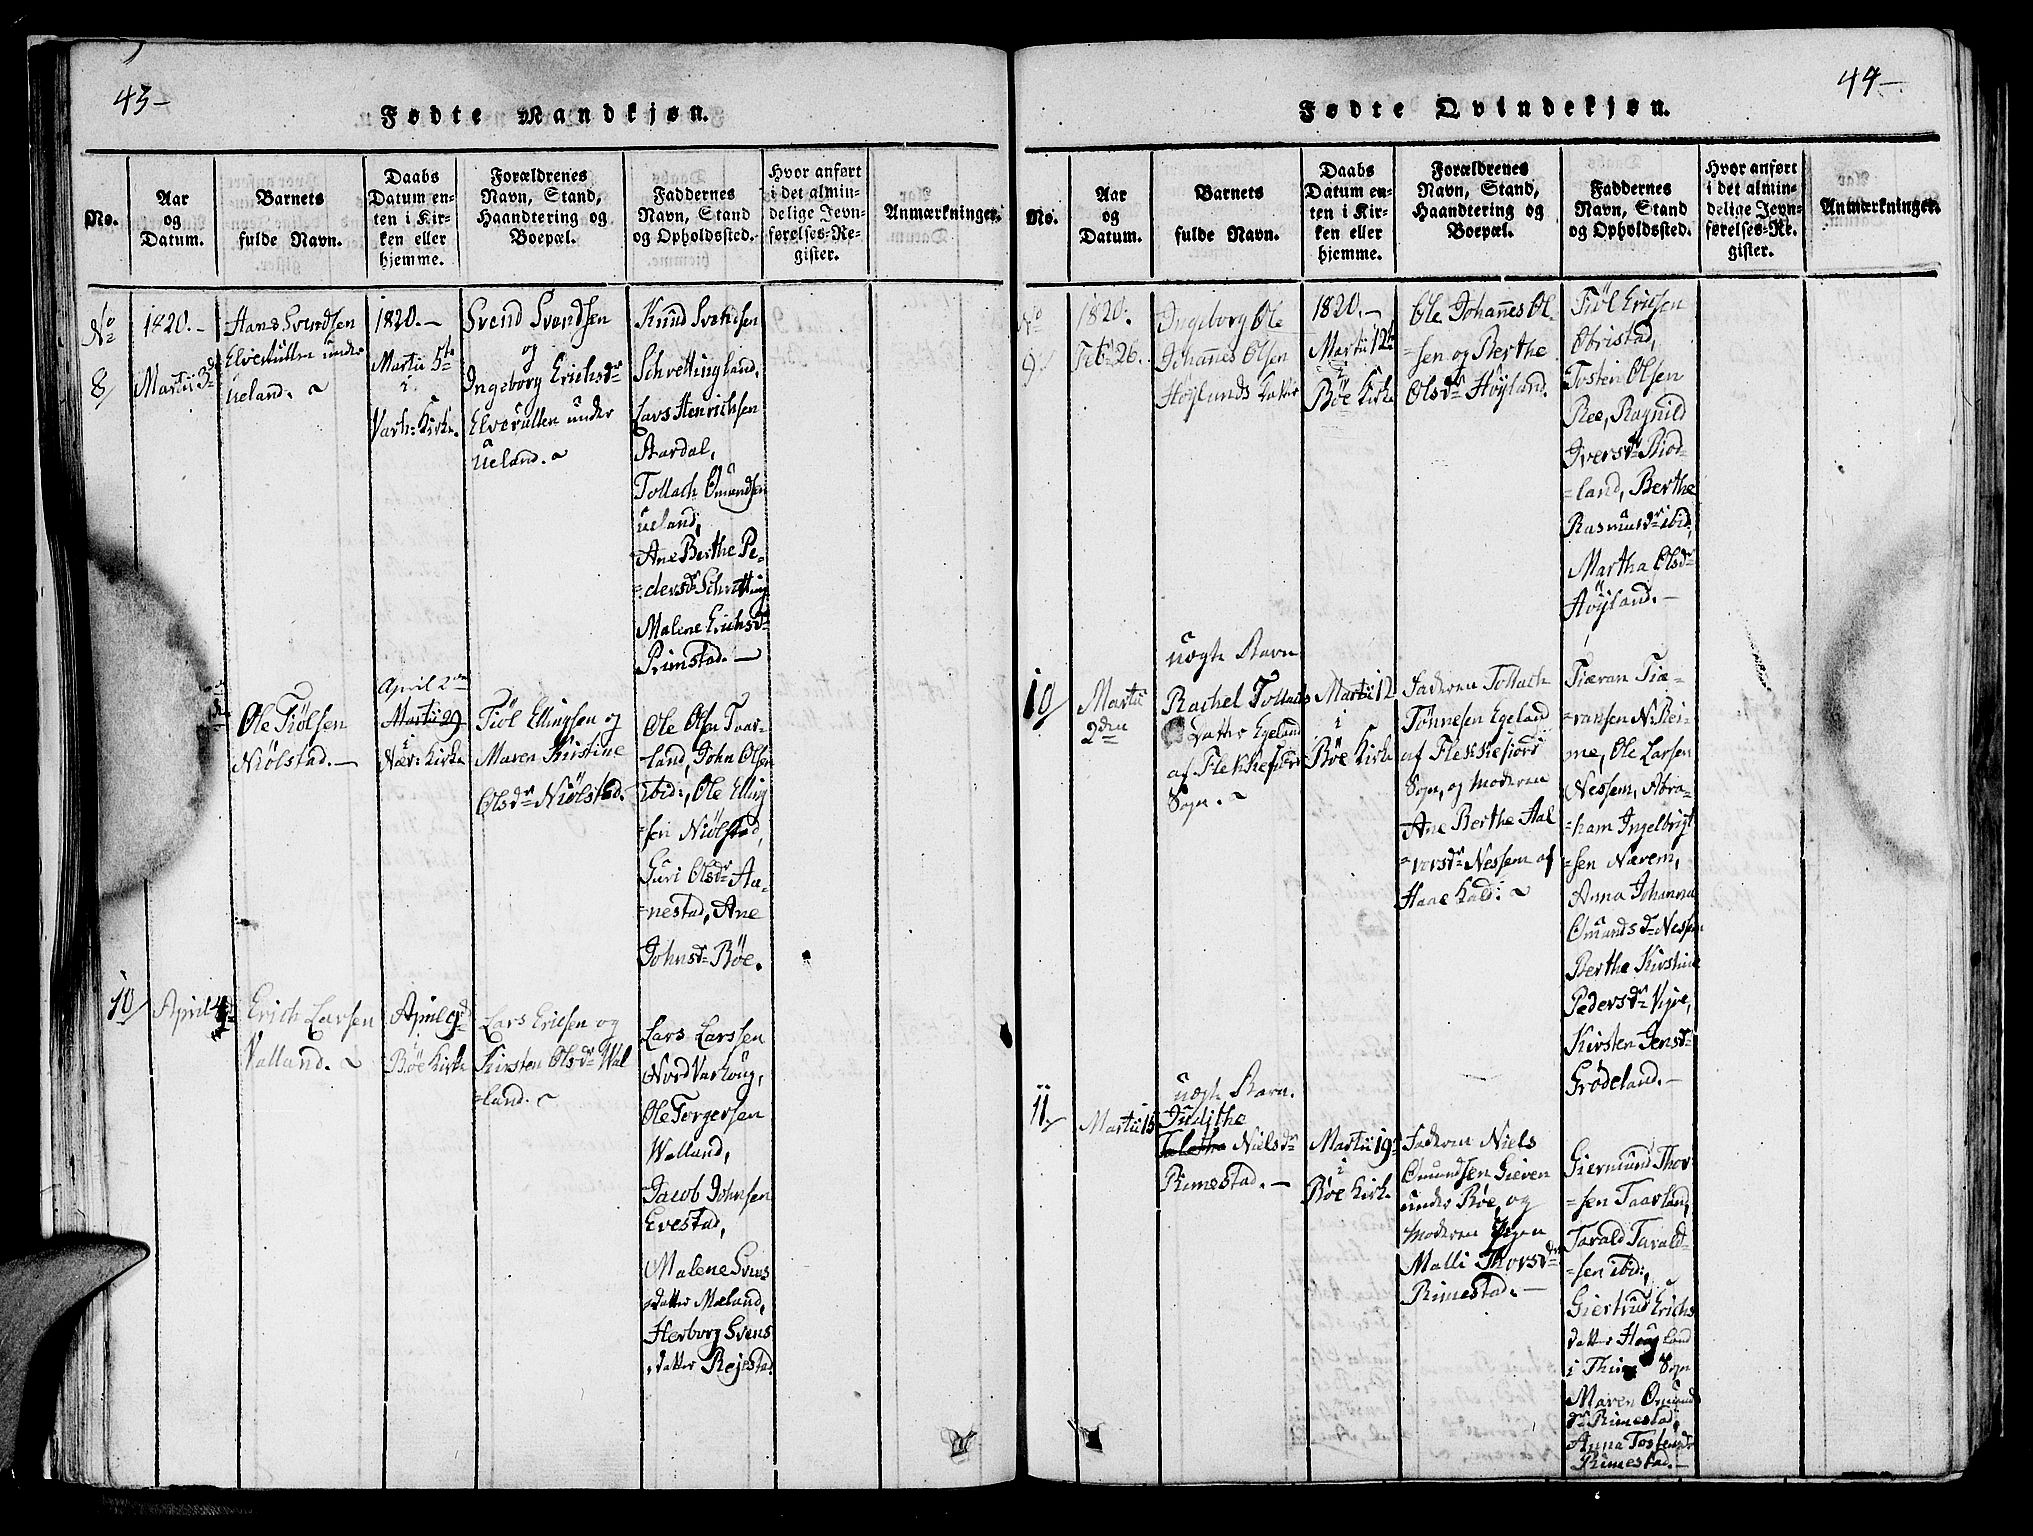 43-
Fødte Mandkjøn.
No.
Aar
og
Datum.
Barnets
fulde Navn.
Daabs
Datum en-
ten i Kir-
ken eller
hjemme.
Forældrenes
Navn, Stand,
Haandtering og
Boepæl.
Faddernes
Navn, Stand
og Opholdssted.
Hvor anført
i det almin-
delige Jevn-
førelses-Re-
gister.
Anmærkninger.
No
8
1820.-
Martii 3d
Hans Svendsen
under
Ueland.
1820.-
Martii 5te
i
Varh: Kirke.
Svend Svendsen
og
Ingeborg Erichsdr
under
Ueland.
Knud Svendsen
Schrettingland,
Lars Henrichsen
Aardal,
Tollach Omundsen
Ueland,
Ane Berthe Pe-
=dersdr Schretting
Malene Erichsdr
Rimstad.-
Ole Tiølsen
Niølstad.-
April 2den
Martii 29
i
Nær: Kirke
Tiøl Ellingsen og
Maren Kirstine
Olsdr Niølstad.
Ole Olsen Taar-
land, John Olsen
ibid:, Ole Elling
=sen Niølstad,
Guri Olsdr Aa-
=nestad, Ane
Johnsdr Bøe.
10
April 4
Erich Larsen
Valland.
April 9d
i
Bøe Kirke
Lars Ericsen og
Kirsten Olsdr Wal
=land.
Lars Larssen
Nord Varhoug,
Ole Torgersen
Walland,
Jacob Johnsen
Evestad,
Malene Svens
datter Mæland,
Herborg Svens
datter Rejestad
44-
Fødte Qvindekjøn.
No.
Aar
og
Datum.
Barnets
fulde Navn.
Daabs
Datum en-
ten i Kir-
ken eller
hjemme.
Forældrenes
Navn, Stand,
Haandtering og
Boepæl.
Faddernes
Navn, Stand
og Opholdssted.
Hvor anført
i det almin-
delige Jevn-
førelses-Re-
gister.
Anmærkninger.
No
9
1820.
Febr 26.
Ingeborg Ole
Johannes Olsen
Høylands Datter
1820.-
Martii 12te
i
Bøe Kirke
Ole Johannes Ol-
=sen og Berthe
Olsdr Høyland.
Tiøl Ericsen
Obristad,
Tosten Olsen
Ree, Ragnild
Iversdr Riod-
=land, Berthe
Rasmusdr ibid,
Martha Olsdr
Høyland.-
10
Martii
2den
uægte Barn
Rachel Tollachs
Datter Egeland
af Flekkefiords
Sogn.
Martii 12
i
Bøe Kirke
Faderen Tollach
Tønnesen Egeland
af Flekkefiords
Sogn, og Moderen
Ane Berthe Hal
=vorsdr Nessem af
Haae
Tiæran Tiæ-
=ransen N: Rei-
me, Ole Larsen
Nessem, Abra-
=ham Ingelbrigt
=sen Nærem,
Anna Johanna
Omundsdr Nessem
Berthe Kirstine
Pedersdr Vigre,
Kirsten Jensdr
Grødeland.-
11.
Martii 15
uægte Barn.
Judithe
Nielsdr
Rimestad.-
Martii 19
i
Bøe Kirke
Faderen Niels
Omundsen Gieven
under Bøe, og
Moderen Pigen
Malli Thorsdr
Rimestad.-
Giermund Thor
=sen Taarland,
Tarald Tarald-
=sen ibid:,
Giertrud Erichs
datter
i Sogn
Maren Omund
dr Rimestad,
Anna Tostensdr
Rimestad.-